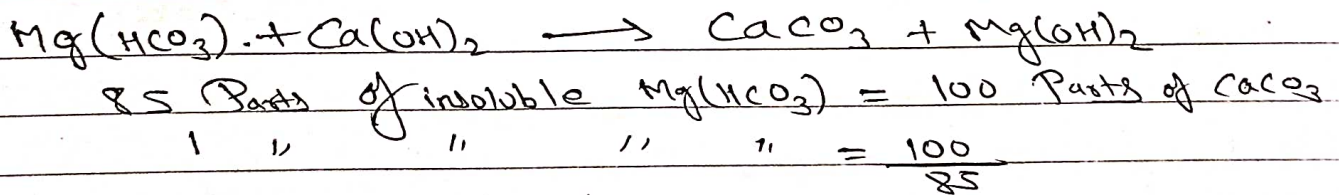 Mg(HCO₃).+ Ca(OH)₂ ⟶ CaCO₃ + Mg(OH)₂
85 Parts of insoluble Mg(HCO₃) = 100 Parts of CaCO₃
1 〃 〃 〃 〃 = 100/85